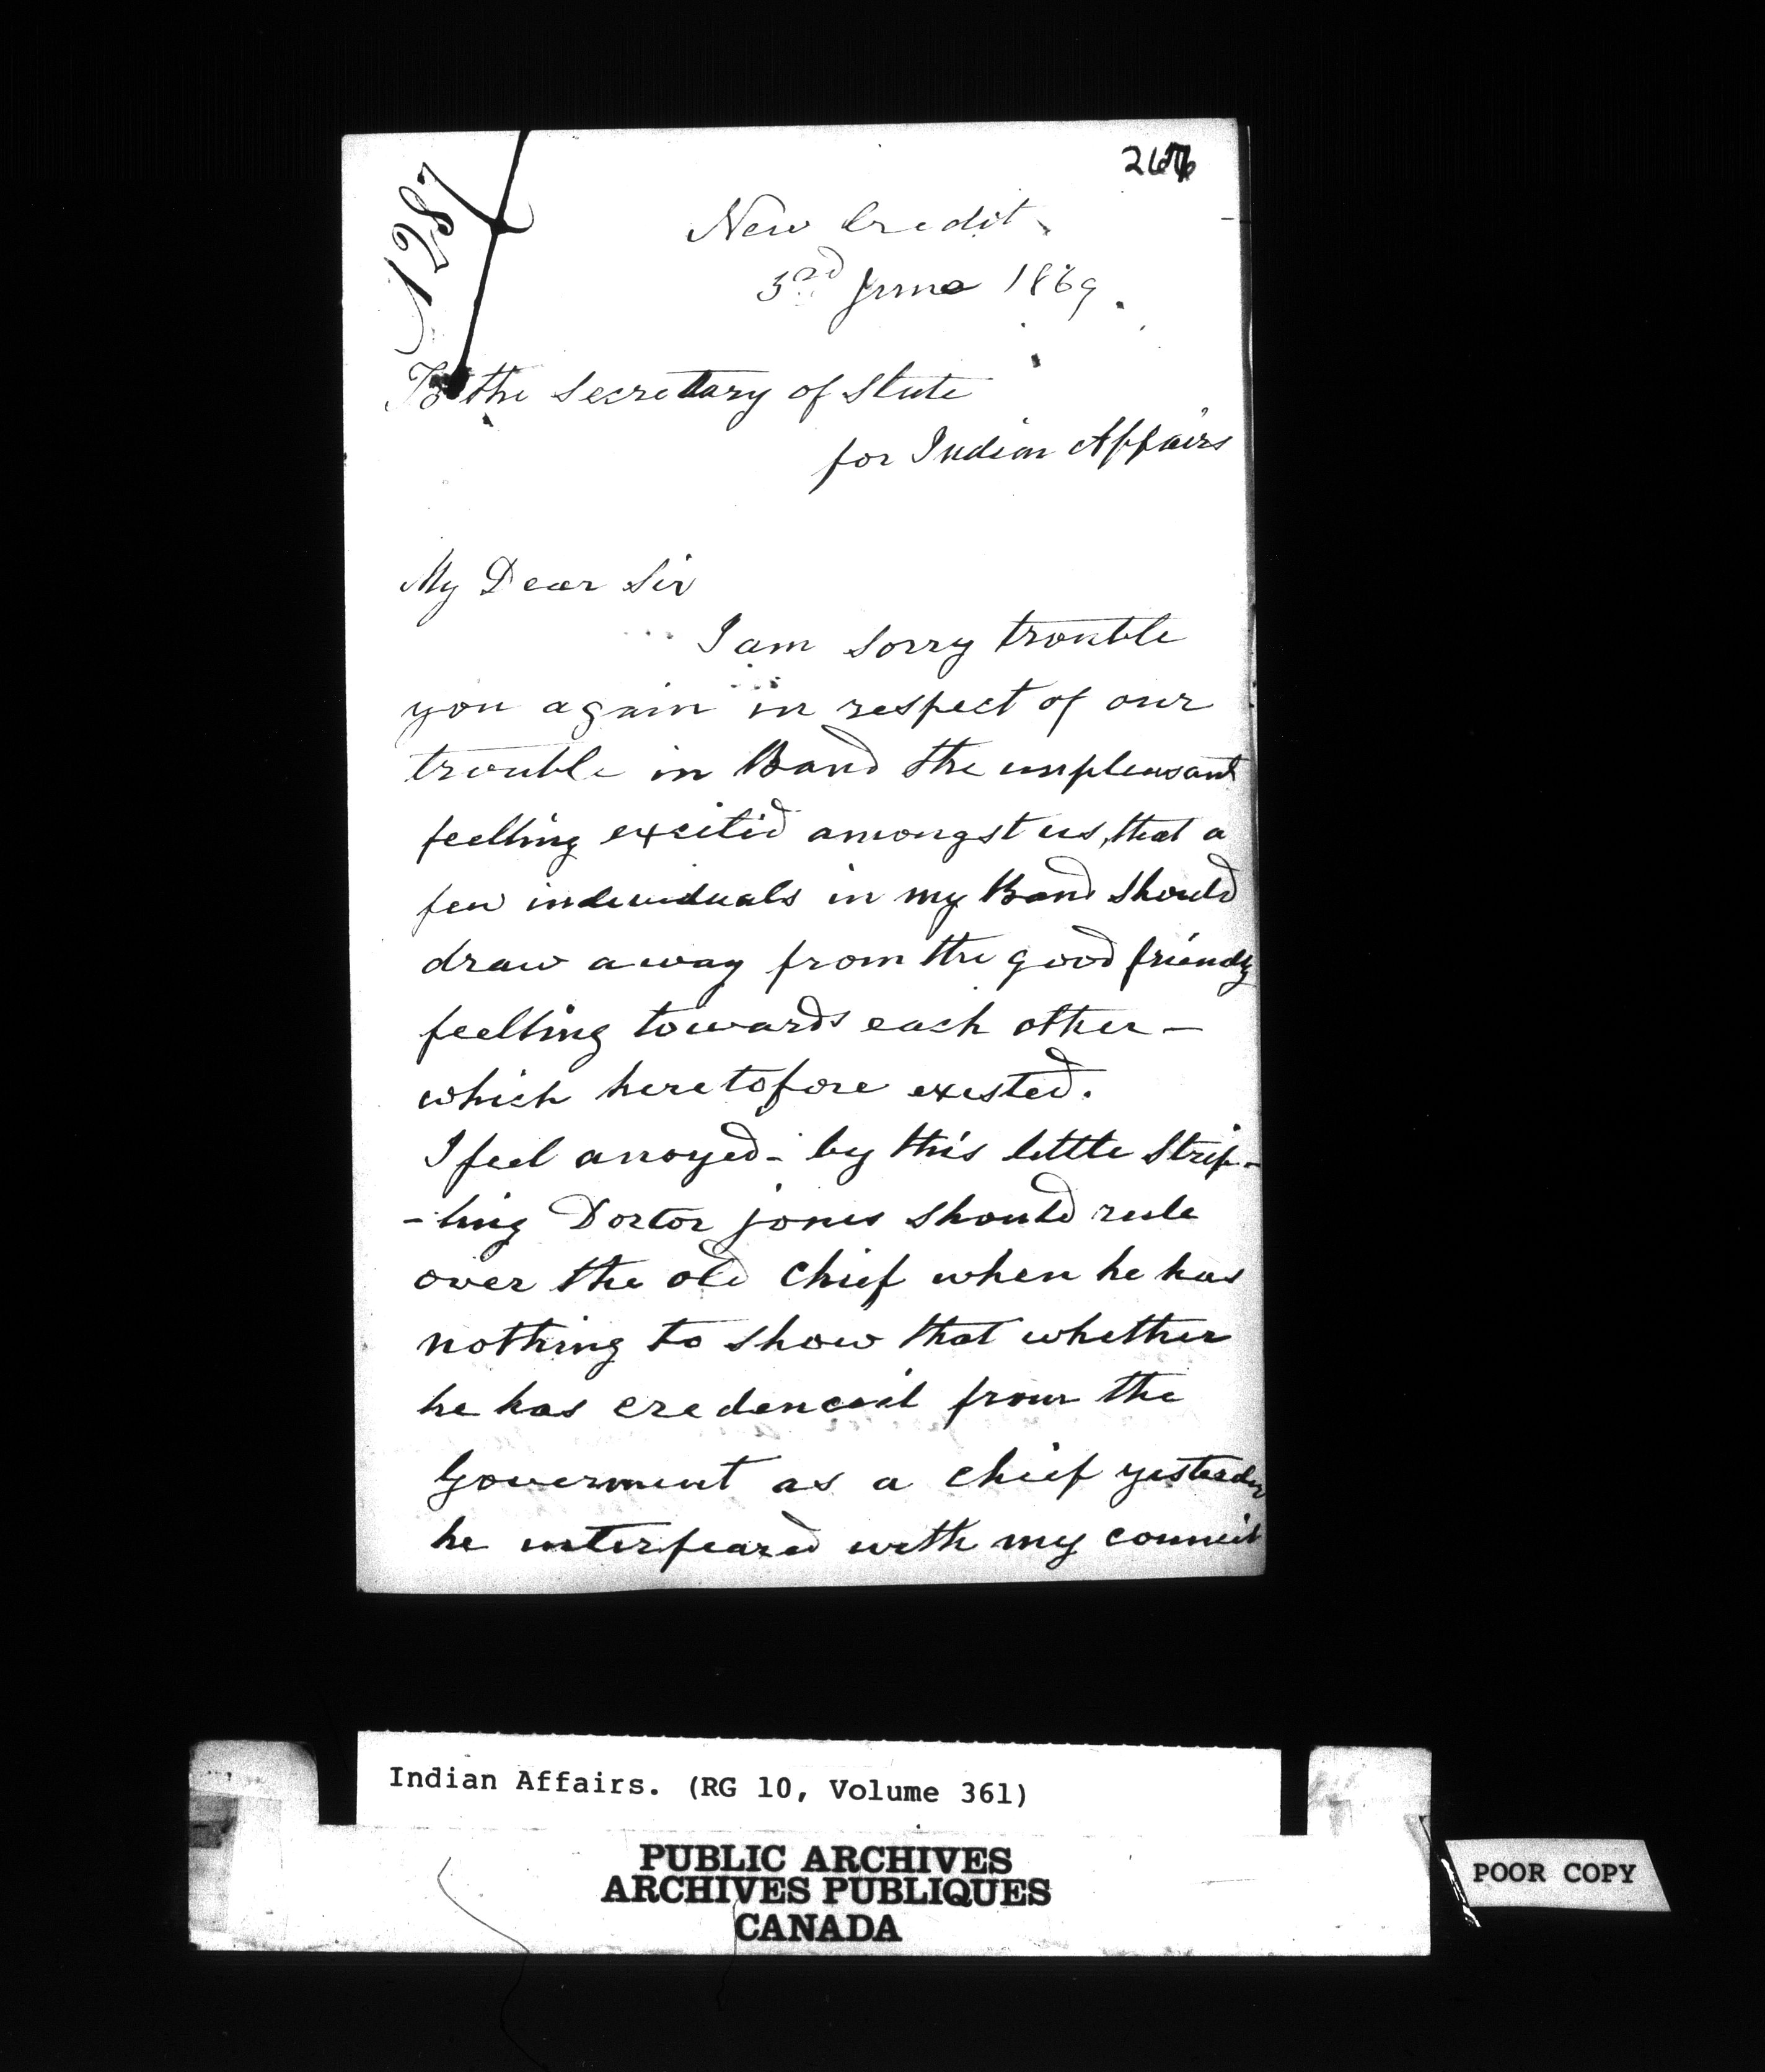 1287
New Credit
3rd June 1869.
To the Secretary of State
for Indian Affairs
My Dear Sir
I am sorry trouble
you again in respect of our
trouble in Band the unpleasant
feelling excitid amongst us, that a
few individuals in my Band should
draw away from the good friendly
feelling towards each other –
which heretofore exested.
I feel anoyed – by this little Strip-
-ling Doctor jones should rule
over the old Chief when he has
nothing to show that whether
he has credencial from the
Goverment as a Chief yesterday
he interfeared with my council
Indian Affairs. (RG 10, Volume 361)
PUBLIC ARCHIVES
ARCHIVES PUBLIQUES
CANADA
POOR COPY